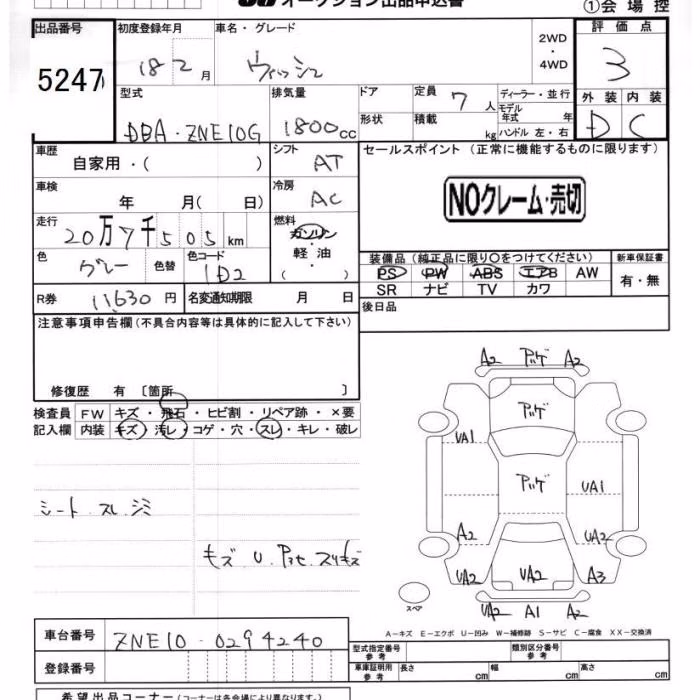 オークション出品申込書
①会場控
出品番号 初度登録年月 車名・グレード 2WD・4WD 評価点
5247 18 2月 ウィッシュ 3
型式 排気量 ドア 定員 7人 ディーラー・並行 外装 内装
DBA・ZNE10G 1800cc 形状 積載 kg モデル年式 年 ハンドル 左・右 D C
車歴 シフト セールスポイント(正常に機能するものに限ります)
自家用・( ) AT
車検 冷房
年 月( 日) AC NOクレーム・売切
走行 燃料
20万7千505km ガソリン・軽油・( )
色 色替 色コード 装備品(純正品に限り○をつけてください) 新車保証書
グレー 1D2 PS PW ABS エアB AW 有・無
SR ナビ TV カワ
R券 11,630円 名変通知期限 月 日 後日品
注意事項申告欄(不具合内容等は具体的に記入して下さい)
修復歴 有 〔箇所 〕
検査員 FW キズ・飛石・ヒビ割・リペア跡・×要
記入欄 内装 キズ・汚レ・コゲ・穴・スレ・キレ・破レ
A2 アハゲ A2
アハゲ
UA1
アハゲ UA1
シート スレ シミ
A2 UA2
キズ U スリキズ
UA2 UA2 A3
スペア UA2 A1 A2
A-キズ E-エクボ U-凹み W-補修跡 S-サビ C-腐食 XX-交換済
車台番号 ZNE10-0294240
型式指定番号 参考 類別区分番号 参考
登録番号 車庫証明用 参考 長さ cm 幅 cm 高さ cm
希望出品コーナー(コーナーは各会場により異なります。)